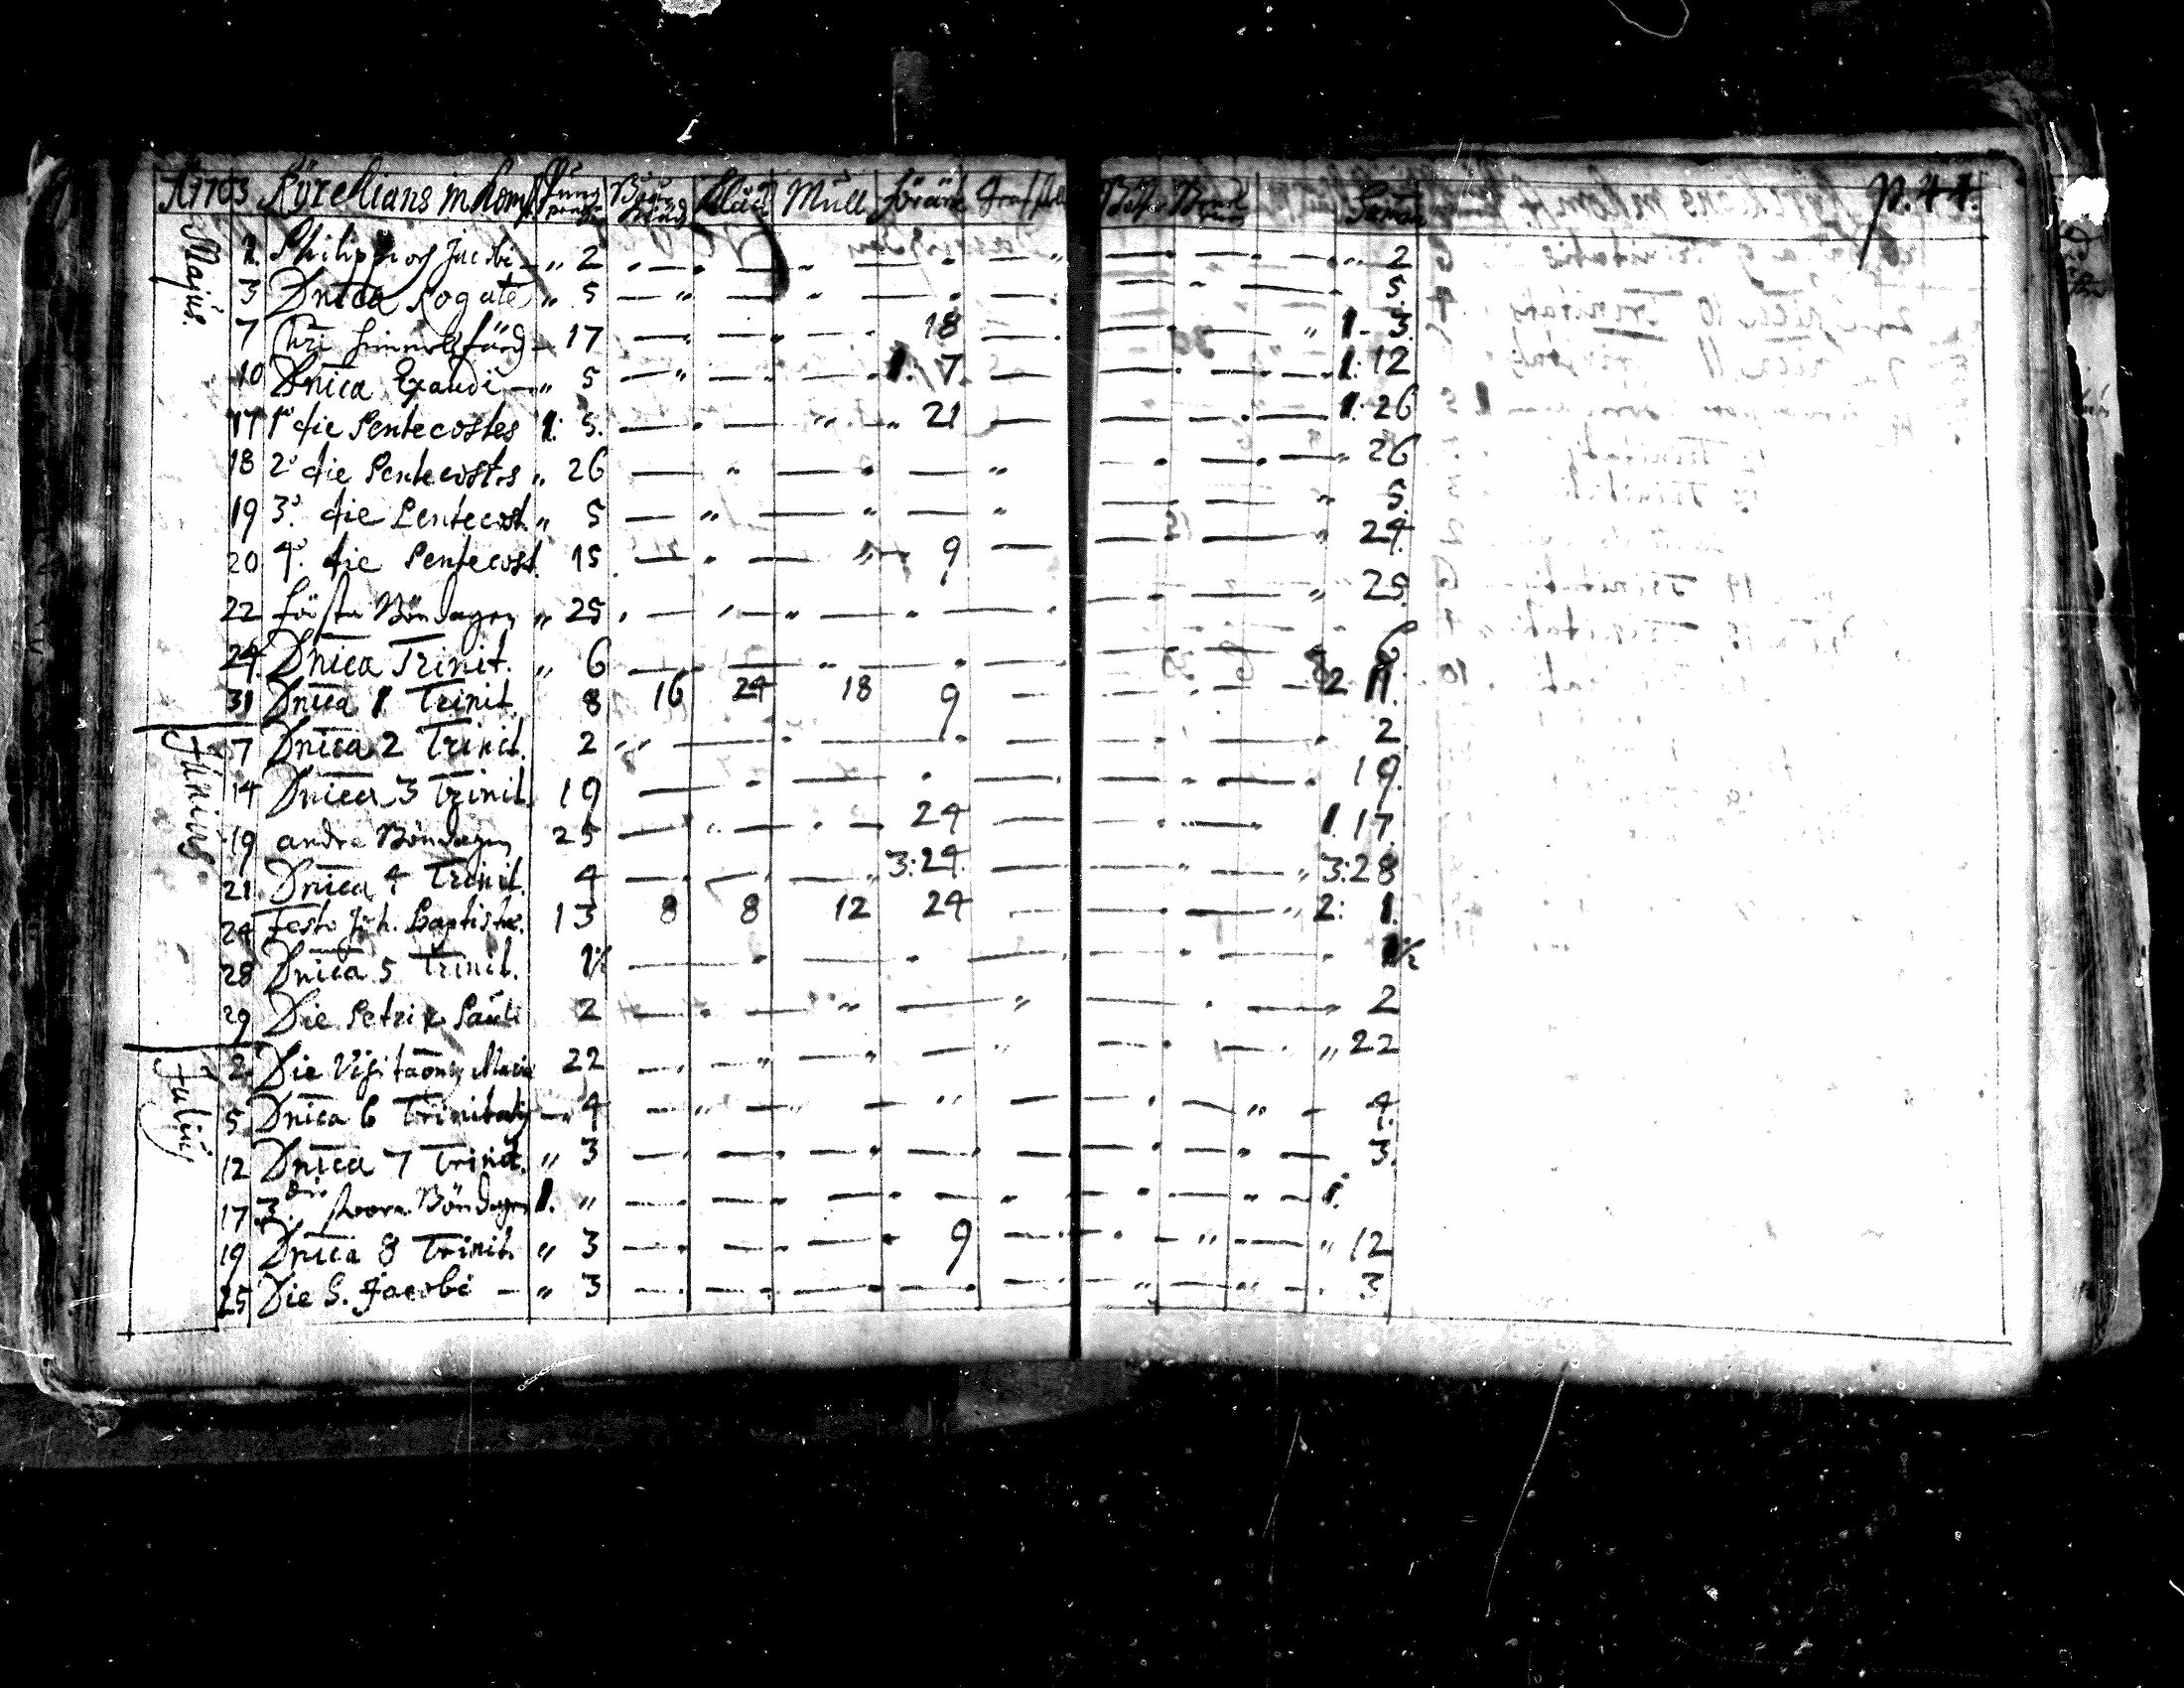 A 1703 Kÿrckians inkomst Pung Klåck Mull föräh Graf Summa p. 44.
Majus. 1. Philippi och Jacobi — „ 2 „ 2
3 Dnica Rogate „ 5 5.
7 Chri himmelsfärd — 17 18 „ 1- 3.
10 Dnica Exaudi — „ 5 1. 7 1: 12
17 1º die Pentecostes 1: 5. „ 21 1: 26
18 2º die Pentecostes „ 26 „ 26
19 3º die Pentecost. „ 5 „ 5.
20 4º die Pentecost. 15. 9 „ 24.
22 första Böndagen „ 25 „ 25.
24. Dnica Trinit. „ 6 6
31 Dnica 1 Trinit. 8 16 24 18 9 2 11.
Junius 7 Dnica 2 Trinit. 2 2
14 Dnica 3 Trinit. 19 19.
19 andra Böndagen 25 24 1. 17.
21. Dnica 4 Trinit. 4 3:24. „ 3:28
24 Festo Joh. Baptistæ. 13 8 8 12 24 „ 2: 1.
28 Dnica 5 Trinit. 1½ 1½
29 Die Petri & Pauli 2 2
Julius 2. Die Visitaonis Mariæ 22 „ 22
5 Dnica 6 Trinitatis — „ 4 4.
12 Dnica 7 Trinit. „ 3 3.
17 3die stoora Böndagen 1. „ 1.
19 Dnica 8 Trinit. „ 3 9 „ 12
25 Die S. Jacobi — „ 3 3